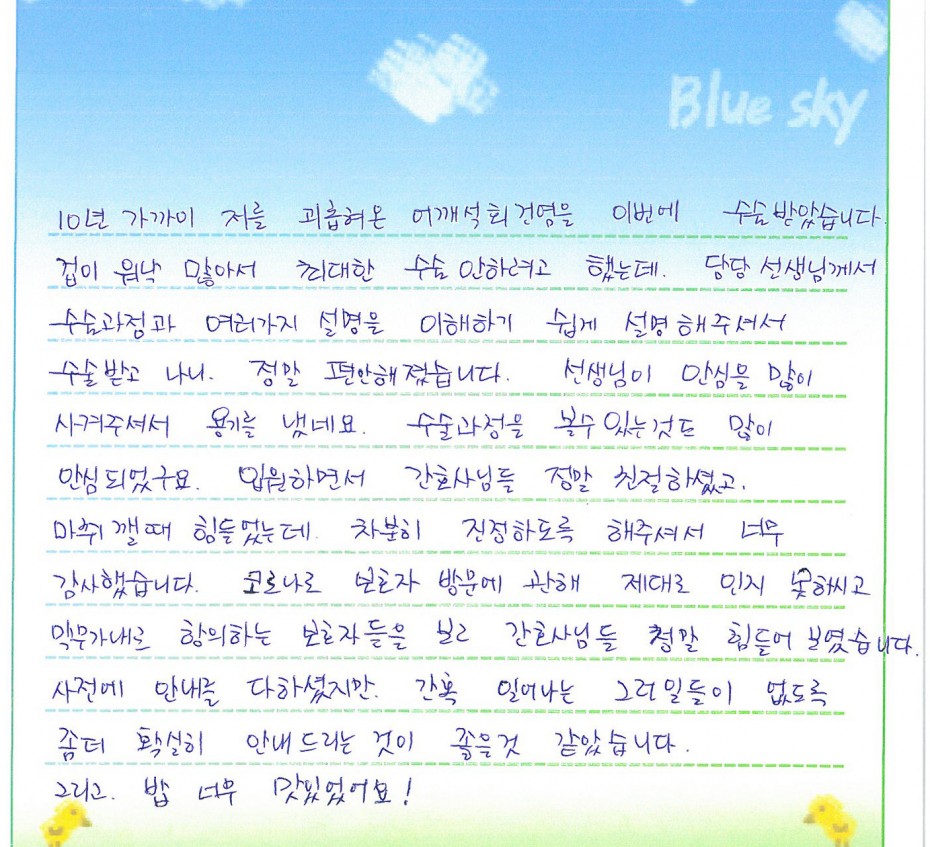 Blue sky
10년 가까이 저를 괴롭혀온 어깨석회건염을 이번에 수술받았습니다.
겁이 워낙 많아서 최대한 수술 안하려고 했는데. 담당 선생님께서
수술과정과 여러가지 설명을 이해하기 쉽게 설명해주셔서
수술받고 나니. 정말 편안해졌습니다. 선생님이 안심을 많이
시켜주셔서 용기를 냈네요. 수술과정을 볼수있는것도 많이
안심되었구요. 입원하면서 간호사님들 정말 친절하셨고.
마취 깰때 힘들었는데. 차분히 진정하도록 해주셔서 너무
감사했습니다. 코로나로 보호자 방문에 관해 제대로 인지 못하시고
막무가내로 항의하는 보호자들을 보고 간호사님들 정말 힘들어보였습니다.
사전에 안내를 다하셨지만. 간혹 일어나는 그러일들이 없도록
좀더 확실히 안내드리는 것이 좋을것 같았습니다.
그리고. 밥 너무 맛있었어요!